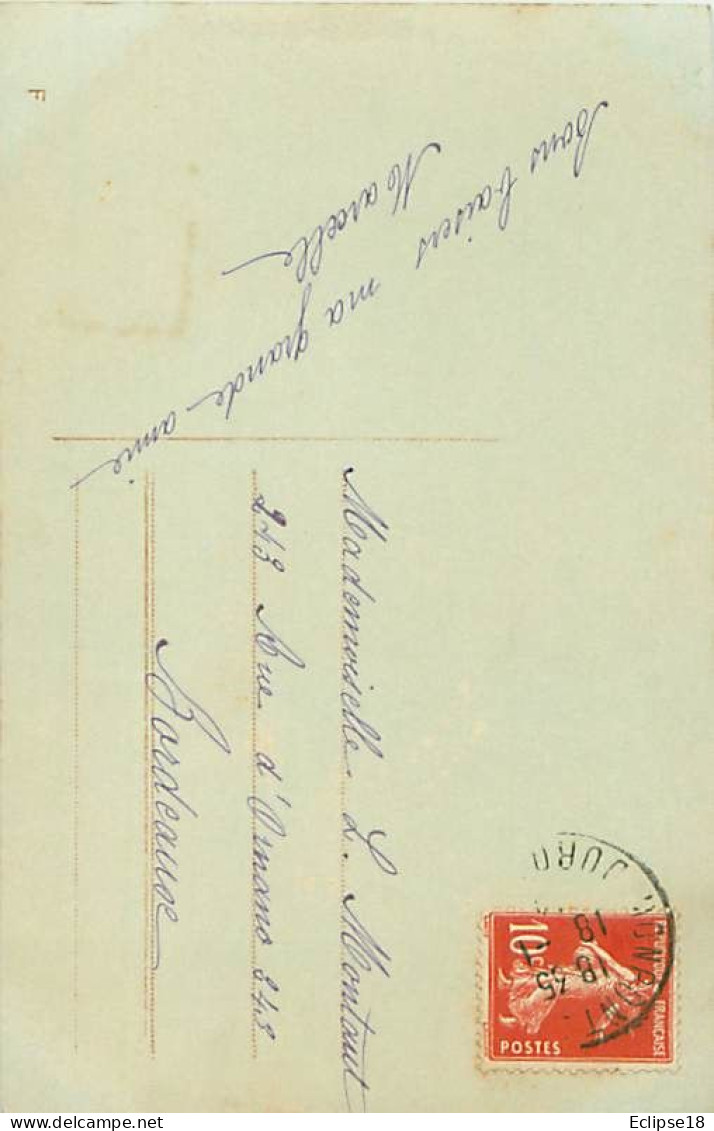 Bons baisers ma grande amie
Marcelle
Mademoiselle L. Montaut
243 Rue d'Ornano 243
Bordeaux
F
10c
POSTES
FRANÇAISE
JURA
18 35
18
Eclipse18